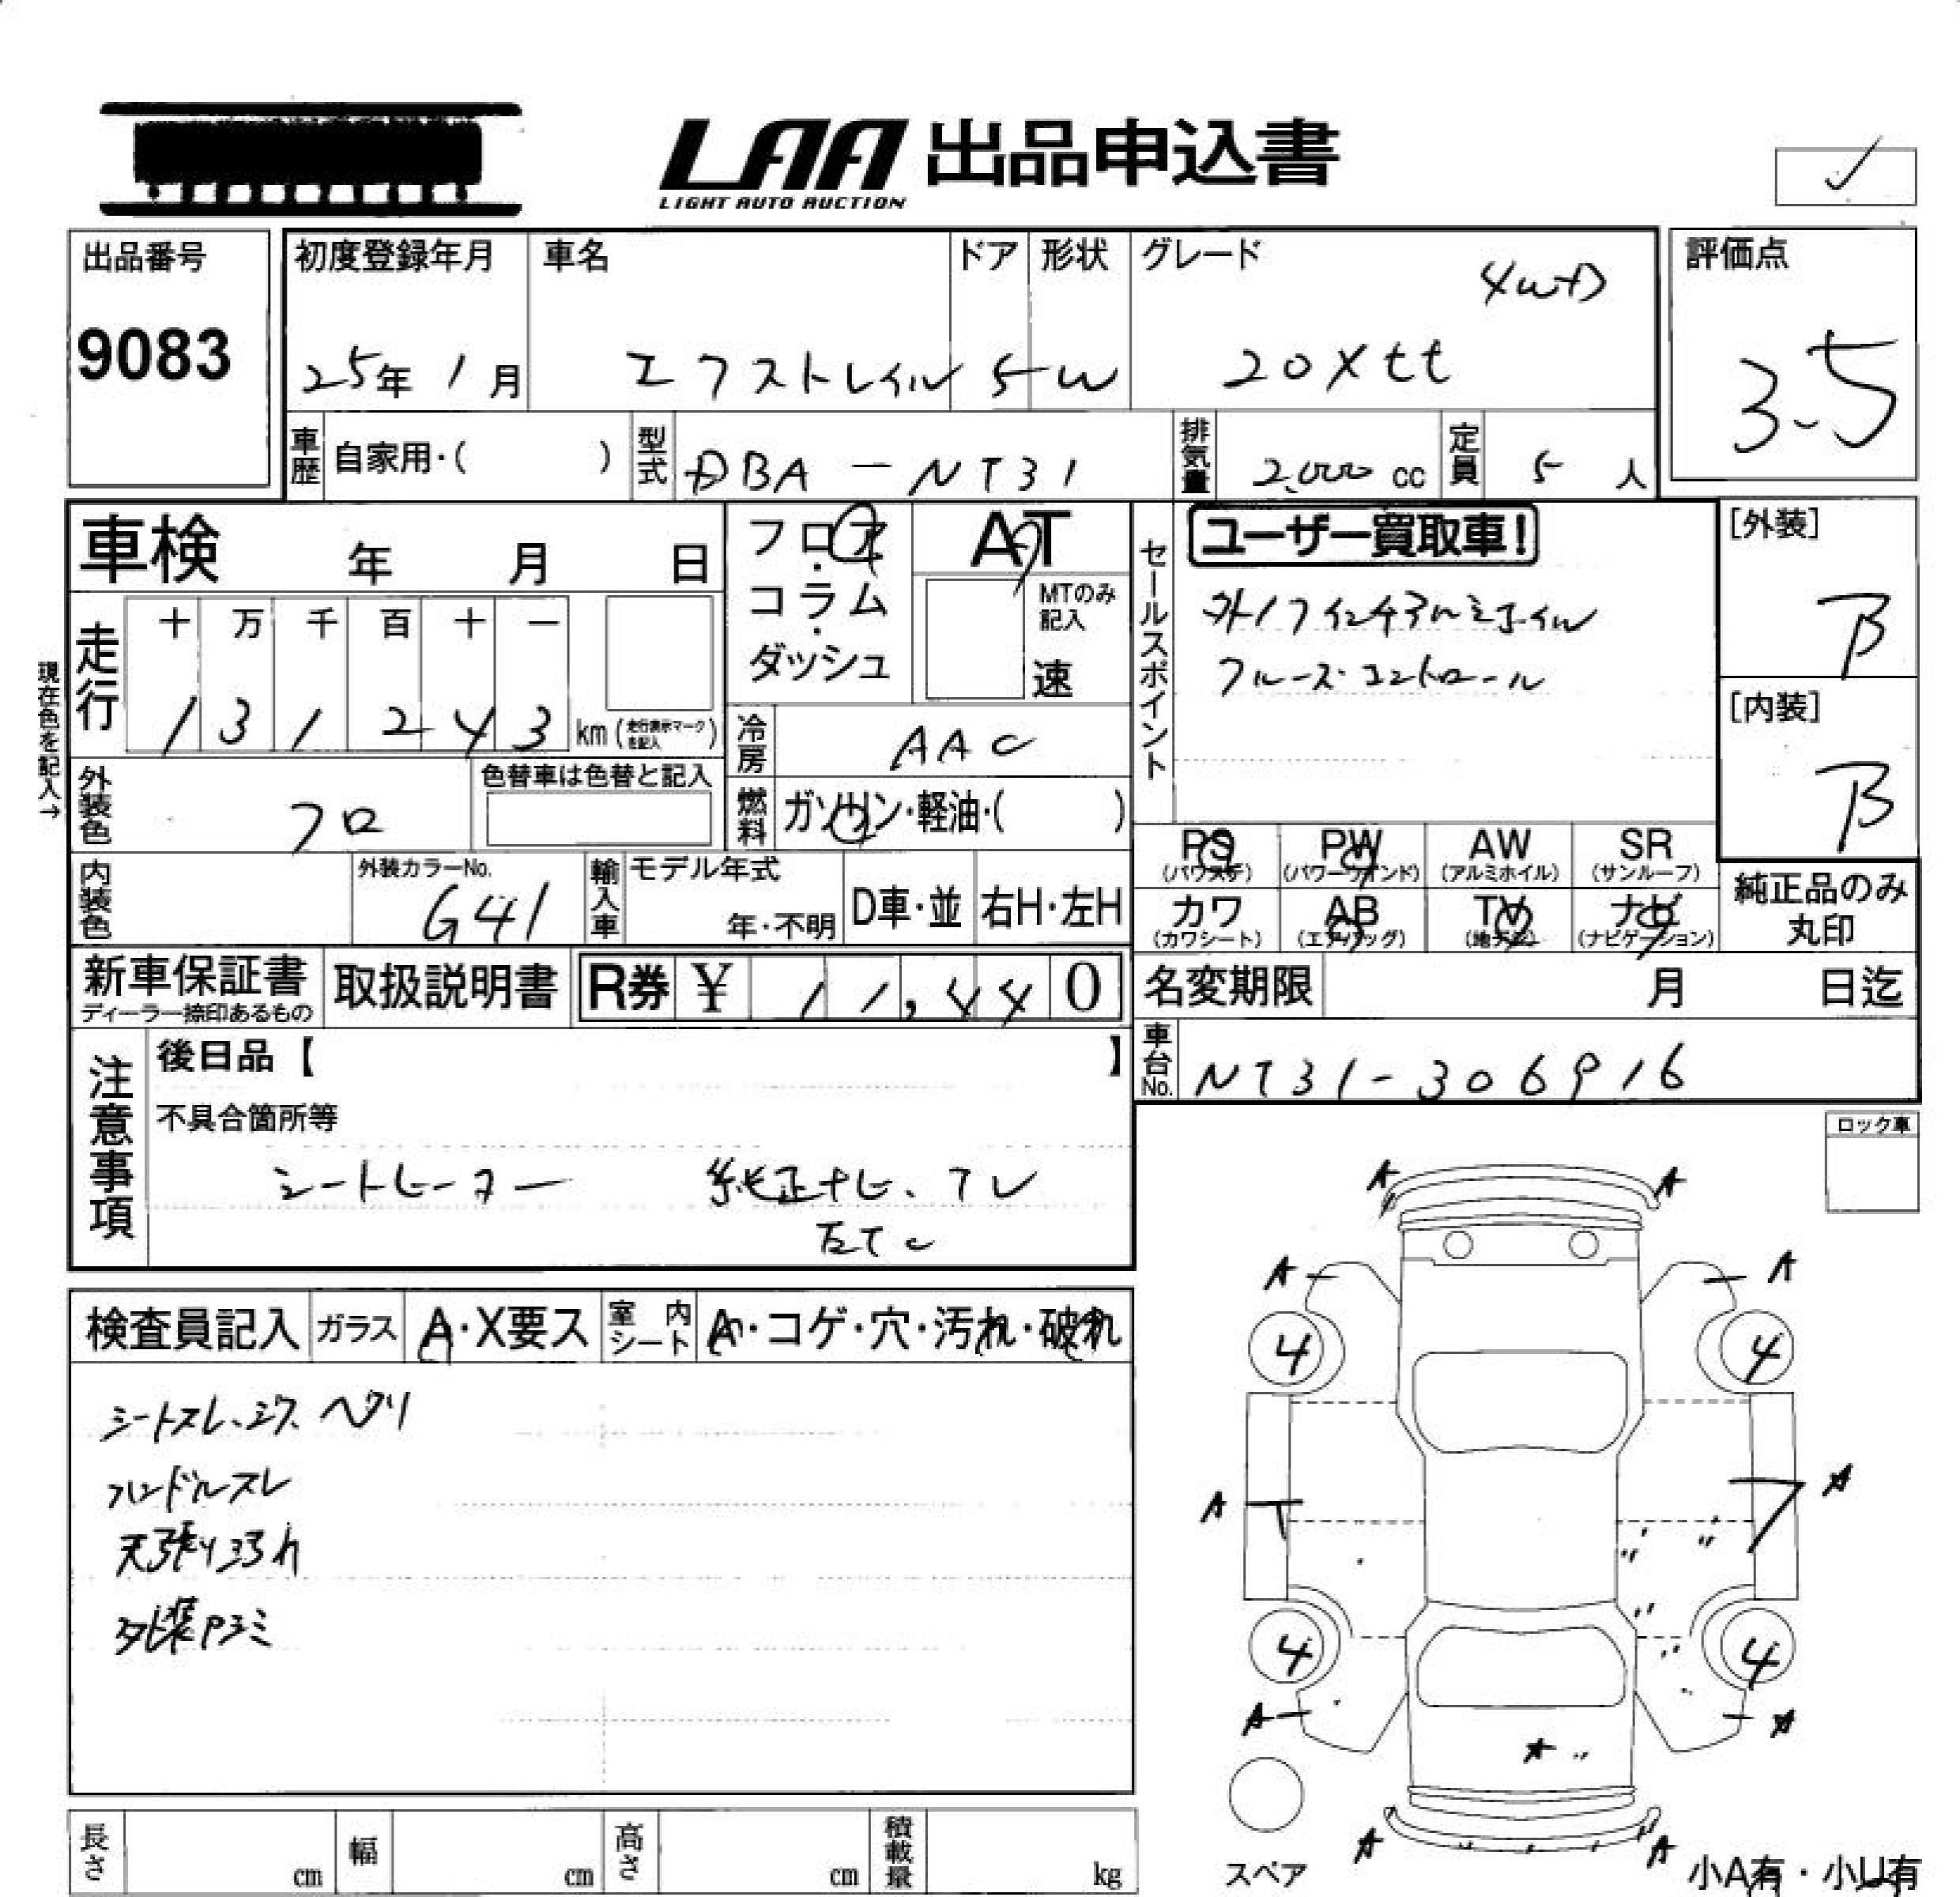 LAA 出品申込書
LIGHT AUTO AUCTION
出品番号
9083
初度登録年月
25年 1月
車名
エクストレイル
ドア
5
形状
W
グレード
4WD
20Xtt
評価点
3.5
車歴
自家用・( )
型式
DBA-NT31
排気量
2,000 cc
定員
5 人
車検 年 月 日
現在色を記入→
走行
十 万 千 百 十 一
1 3 1 2 4 3 km (走行表示マークを記入)
外装色
クロ
色替車は色替と記入
内装色
外装カラーNo.
G41
輸入車
モデル年式
年・不明
D車・並
右H・左H
フロア
・
コラム
・
ダッシュ
AT
MTのみ
記入
速
冷房
AAC
燃料
ガソリン・軽油・( )
セールスポイント
ユーザー買取車!
外17インチアルミホイル
クルーズ・コントロール
[外装]
B
[内装]
B
PS
(パワステ)
PW
(パワーウインド)
AW
(アルミホイル)
SR
(サンルーフ)
カワ
(カワシート)
AB
(エアバッグ)
TV
(地デジ)
ナビ
(ナビゲーション)
純正品のみ
丸印
新車保証書
ディーラー捺印あるもの
取扱説明書
R券 ¥ 11,440
名変期限 月 日迄
車台No.
NT31-306916
注意事項
後日品【 】
不具合箇所等
シートヒーター 純正ナビ、テレ
ETC
ロック車
検査員記入
ガラス
A・X要ス
室内シート
A・コゲ・穴・汚れ・破れ
シートスレ、シワ、ヘタリ
ハンドルスレ
天張り汚れ
外装内ユミ
A A
A A
4 4
A A
4 4
A A
A 〃
A A
スペア
小A有・小U有
長さ cm
幅 cm
高さ cm
積載量 kg